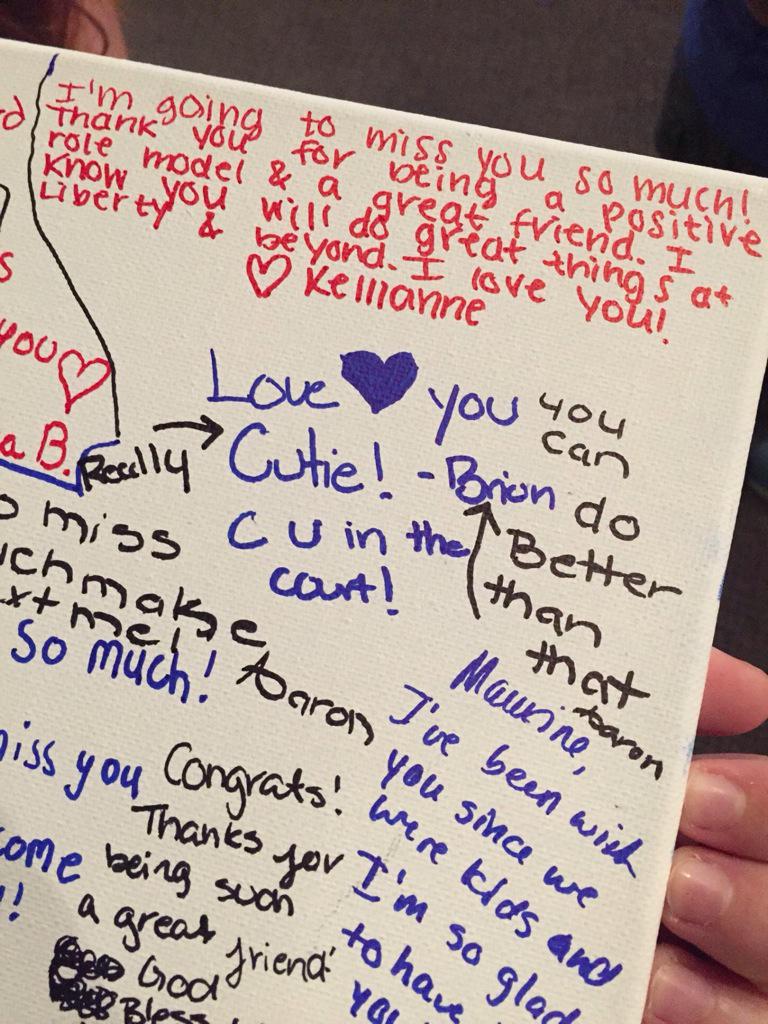 I'm going to miss you so much!
Thank you for being a positive
role model & a great friend. I
know you will do great things at
Liberty & beyond. I love you!
♡ Kellianne
you ♡
a B.
Love ♥ you
Cutie! - Brian
C U in the
court!
Really →
you
can
do
Better
than
that
Aaron
miss
make
me!
Aaron
So much!
miss you
come
Congrats!
Thanks for
being such
a great
friend
God
Bless
Maurine,
I've been with
you since we
were kids and
I'm so glad
to have
you